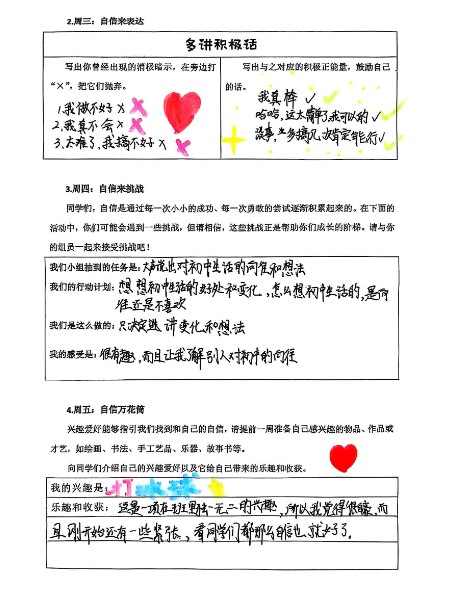 2.周三：自信来表达
多讲积极话
写出你曾经出现的消极暗示，在旁边打
“×”，把它们抛弃。
1.我做不好 × ×
2.我真不会 × ×
3.太难了，我搞不好 × ×
写出与之对应的积极正能量，鼓励自己
的话。
我真棒 ✓ ✓
哈哈，这太简单了，我可以的 ✓
没事，
肯定能行 ✓
3.周四：自信来挑战
同学们，自信是通过每一次小小的成功、每一次勇敢的尝试逐渐积累起来的。在下面的
活动中，你们可能会遇到一些挑战，但请相信，这些挑战正是帮助你们成长的阶梯。请与你
的组员一起来接受挑战吧！
我们小组抽到的任务是：大声说出对初中生活的向往和想法
我们的行动计划：想想初中生活的好处和变化，怎么想初中生活的，是向
往还是不喜欢
我们是这么做的：只决定选讲变化和想法
我的感受是：很有趣，而且让我了解别人对初中的向往
4.周五：自信万花筒
兴趣爱好能够指引我们找到和自己的自信，请提前一周准备自己感兴趣的物品、作品或
才艺，如绘画、书法、手工艺品、乐器、故事书等。
向同学们介绍自己的兴趣爱好以及它给自己带来的乐趣和收获。
我的兴趣是：打冰球
乐趣和收获：这是一项在班里独一无二的兴趣，所以我觉得很酷，而
且刚开始还有一些紧张，看同学们都那么自信也就好了。